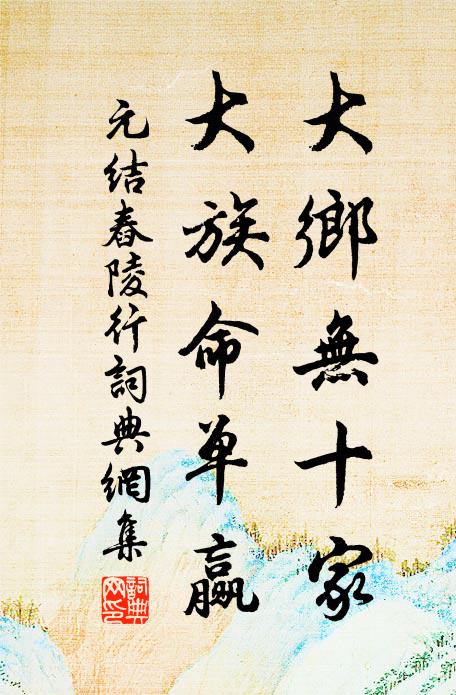 大鄉無十家
大族命单贏
元结舂陵行詞典網集
詞典
网印